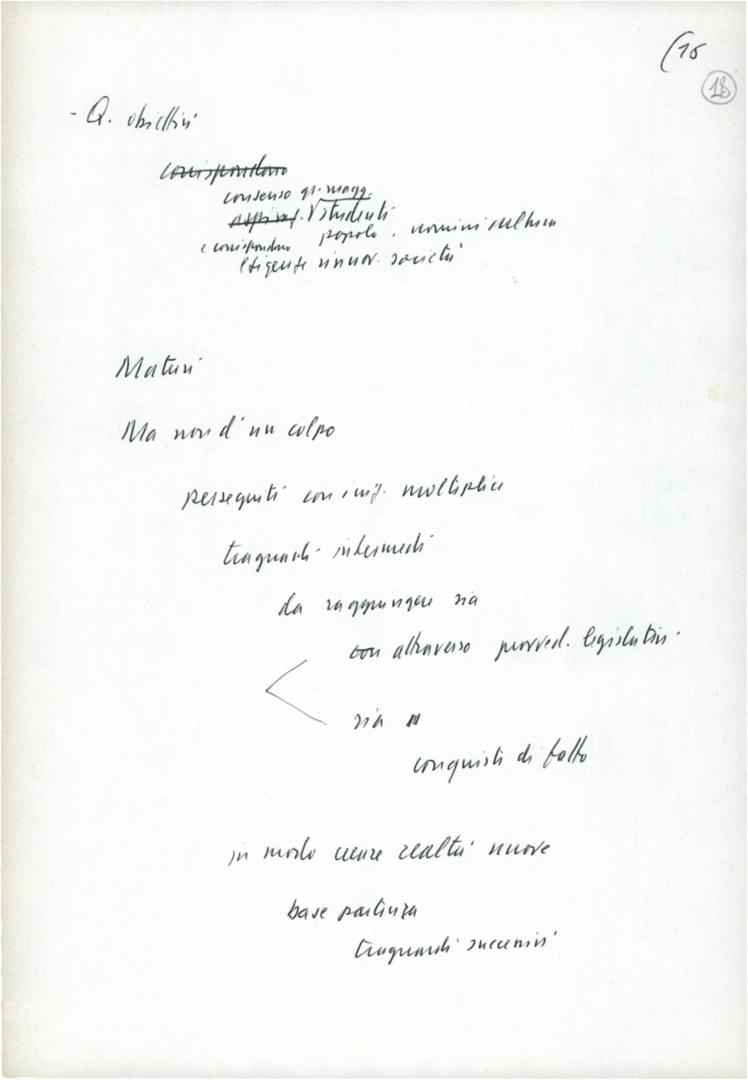 (15
18
- Q. obiettivi
corrispondono
consenso gr. magg.
aspiraz. V studenti
popolo. uomini cultura
e corrispondono
esigenze rinnov. società
Maturi
Ma non d'un colpo
perseguiti con molteplice
traguardi intermedi
da raggiungere sia
con attraverso provved. legislativi
sia
conquiste di fatto
in modo creare realtà nuove
base partenza
traguardi successivi